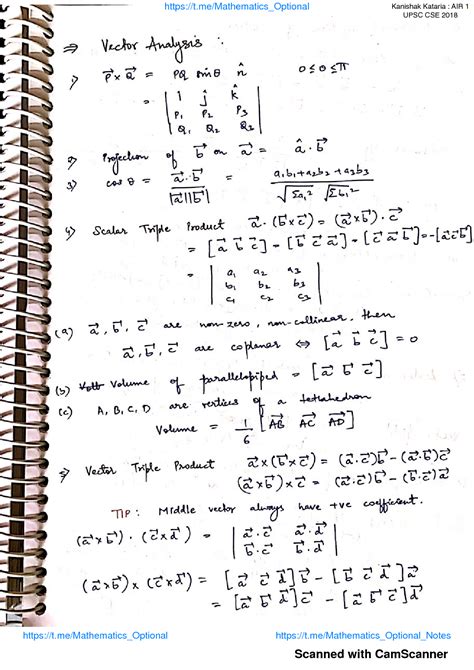 https://t.me/Mathematics_Optional
Kanishak Kataria : AIR 1
UPSC CSE 2018
⇒ Vector Analysis :
1) P⃗ × Q⃗ = PQ sinθ n̂   0 ≤ θ ≤ π
= | î ĵ k̂ |
| P₁ P₂ P₃ |
| Q₁ Q₂ Q₃ |
2) Projection of b⃗ on a⃗ = â . b⃗
3) cos θ = a⃗ . b⃗ / |a⃗||b⃗| = a₁b₁+a₂b₂+a₃b₃ / √Σa₁² √Σb₁²
4) Scalar Triple Product a⃗ . (b⃗ × c⃗) = (a⃗ × b⃗) . c⃗
= [a⃗ b⃗ c⃗] = [b⃗ c⃗ a⃗] = [c⃗ a⃗ b⃗] = -[a⃗ c⃗ b⃗]
= | a₁ a₂ a₃ |
| b₁ b₂ b₃ |
| c₁ c₂ c₃ |
(a) a⃗, b⃗, c⃗ are non-zero, non-collinear, then
a⃗, b⃗, c⃗ are coplanar ⇔ [a⃗ b⃗ c⃗] = 0
(b) Volume of parallelopiped = [a⃗ b⃗ c⃗]
(c) A, B, C, D are vertices of a tetrahedron
Volume = 1/6 [AB⃗ AC⃗ AD⃗]
5) Vector Triple Product a⃗ × (b⃗ × c⃗) = (a⃗ . c⃗)b⃗ - (a⃗ . b⃗)c⃗
(a⃗ × b⃗) × c⃗ = (a⃗ . c⃗)b⃗ - (b⃗ . c⃗)a⃗
TIP : Middle vector always have +ve coefficient.
(a⃗ × b⃗) . (c⃗ × d⃗) = | a⃗ . c⃗ a⃗ . d⃗ |
| b⃗ . c⃗ b⃗ . d⃗ |
(a⃗ × b⃗) × (c⃗ × d⃗) = [a⃗ c⃗ d⃗] b⃗ - [b⃗ c⃗ d⃗] a⃗
= [a⃗ b⃗ d⃗] c⃗ - [a⃗ b⃗ c⃗] d⃗
https://t.me/Mathematics_Optional
https://t.me/Mathematics_Optional_Notes
Scanned with CamScanner